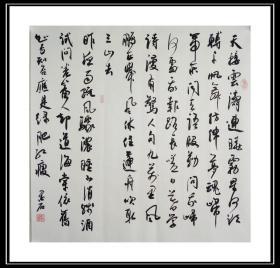 天接雲濤連曉霧星河欲
轉千帆舞彷彿夢魂歸
帝所聞天語殷勤問我歸
何處我報路長嗟日暮學
詩謾有驚人句九萬里風
鵬正舉風休住蓬舟吹取
三山去
昨夜雨疏風驟濃睡不消殘酒
試問卷簾人卻道海棠依舊
知否知否應是綠肥紅瘦